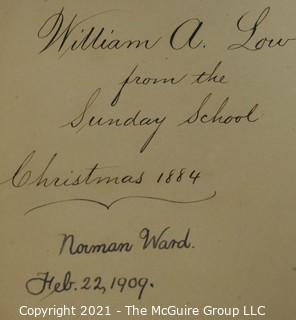 William A. Low
from the
Sunday School
Christmas 1884
Norman Ward.
Feb. 22, 1909.
Copyright 2021 - The McGuire Group LLC